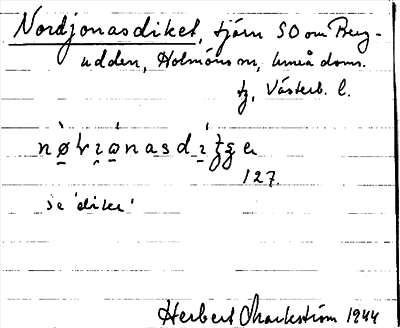 Nordjonasdiket, tjärn SO om Berg-
udden, Holmöns sn, Umeå doms.
tg, Västerb. l.
127.
se 'diket'
Herbert Markström 1944